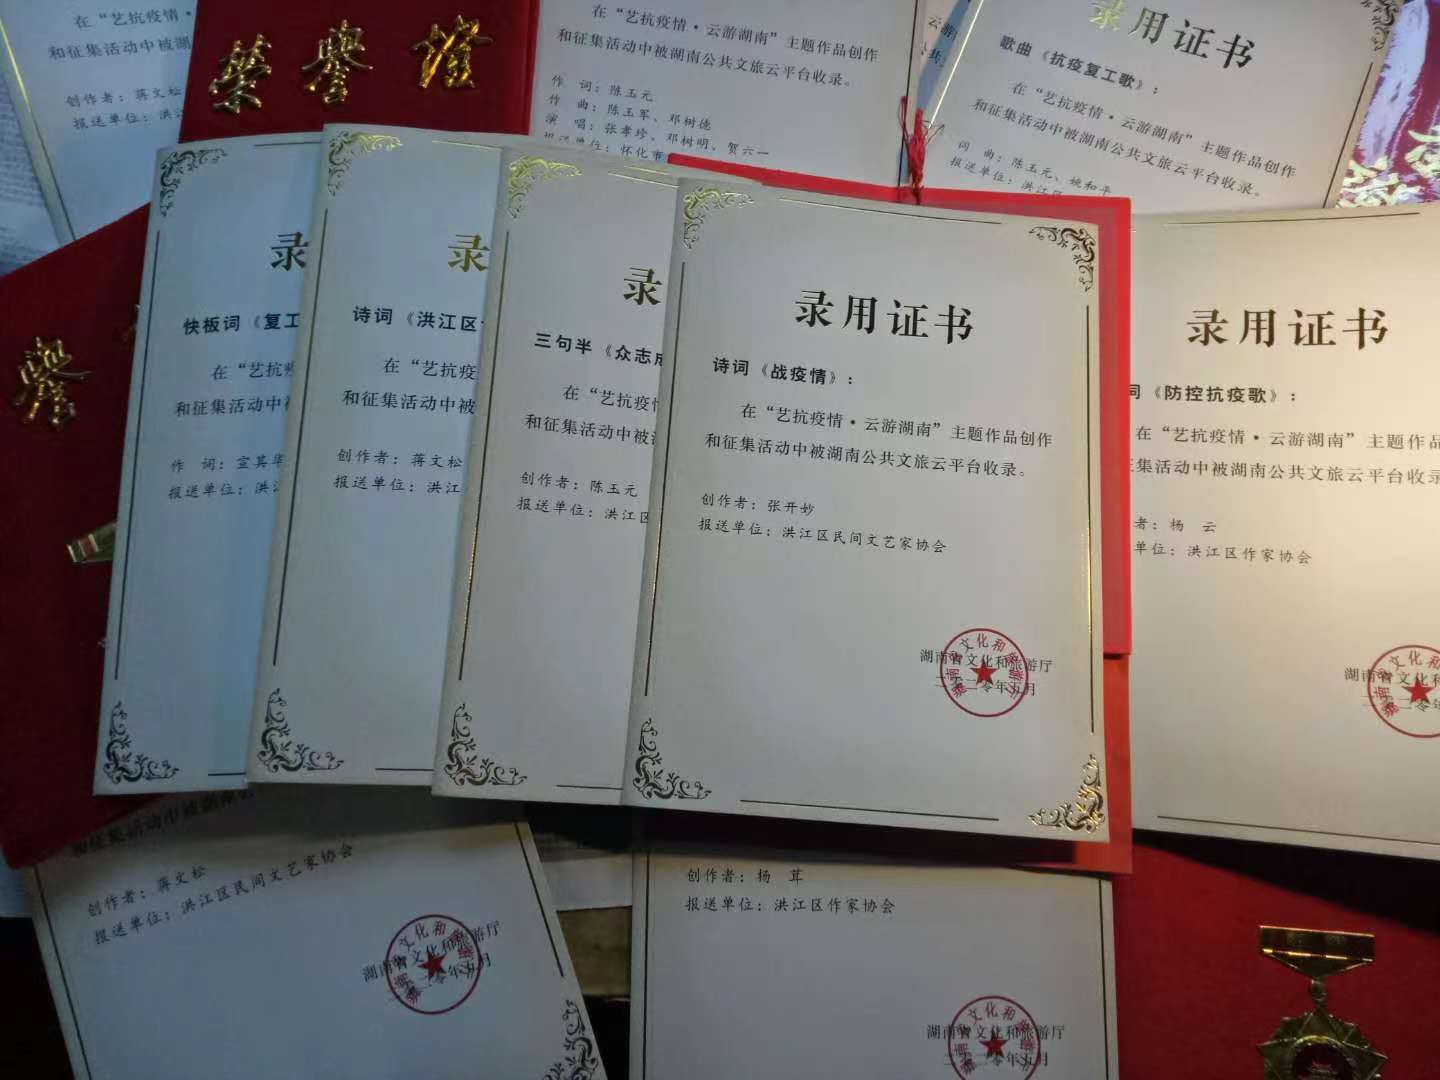 在“艺抗疫情·
和征集活动中被湖
创作者：蒋文松
报送单位：洪江
荣誉证
在“艺抗疫情·云游湖南”主题作品创作
和征集活动中被湖南公共文旅云平台收录。
作 词：陈玉元
作 曲：陈玉军、邓树德
演 唱：张孝珍、邓树明、贺六一
报送单位：怀化市
录用证书
歌曲《抗疫复工歌》：
在“艺抗疫情·云游湖南”主题作品创作
和征集活动中被湖南公共文旅云平台收录。
词 曲：陈玉元、姚和平
报送单位：洪江区
誉
录
快板词《复工
在“艺抗疫
和征集活动中被
作 词：宣其华
报送单位：洪江
录
诗词《洪江区
在“艺抗疫
和征集活动中被
创作者：蒋文松
报送单位：洪江
录
三句半《众志成
在“艺抗疫情
和征集活动中被
创作者：陈玉元
报送单位：洪江区
录用证书
诗词《战疫情》：
在“艺抗疫情·云游湖南”主题作品创作
和征集活动中被湖南公共文旅云平台收录。
创作者：张开妙
报送单位：洪江区民间文艺家协会
湖南省文化和旅游厅
二零二零年五月
录用证书
词《防控抗疫歌》：
在“艺抗疫情·云游湖南”主题作品
征集活动中被湖南公共文旅云平台收录
者：杨 云
单位：洪江区作家协会
湖南省文化和
二零二零年
和征集活动中被湖南公
创作者：蒋文松
报送单位：洪江区民间文艺家协会
湖南省文化和旅游厅
二零二零年五月
创作者：杨 茸
报送单位：洪江区作家协会
湖南省文化和旅游厅
二零二零年五月